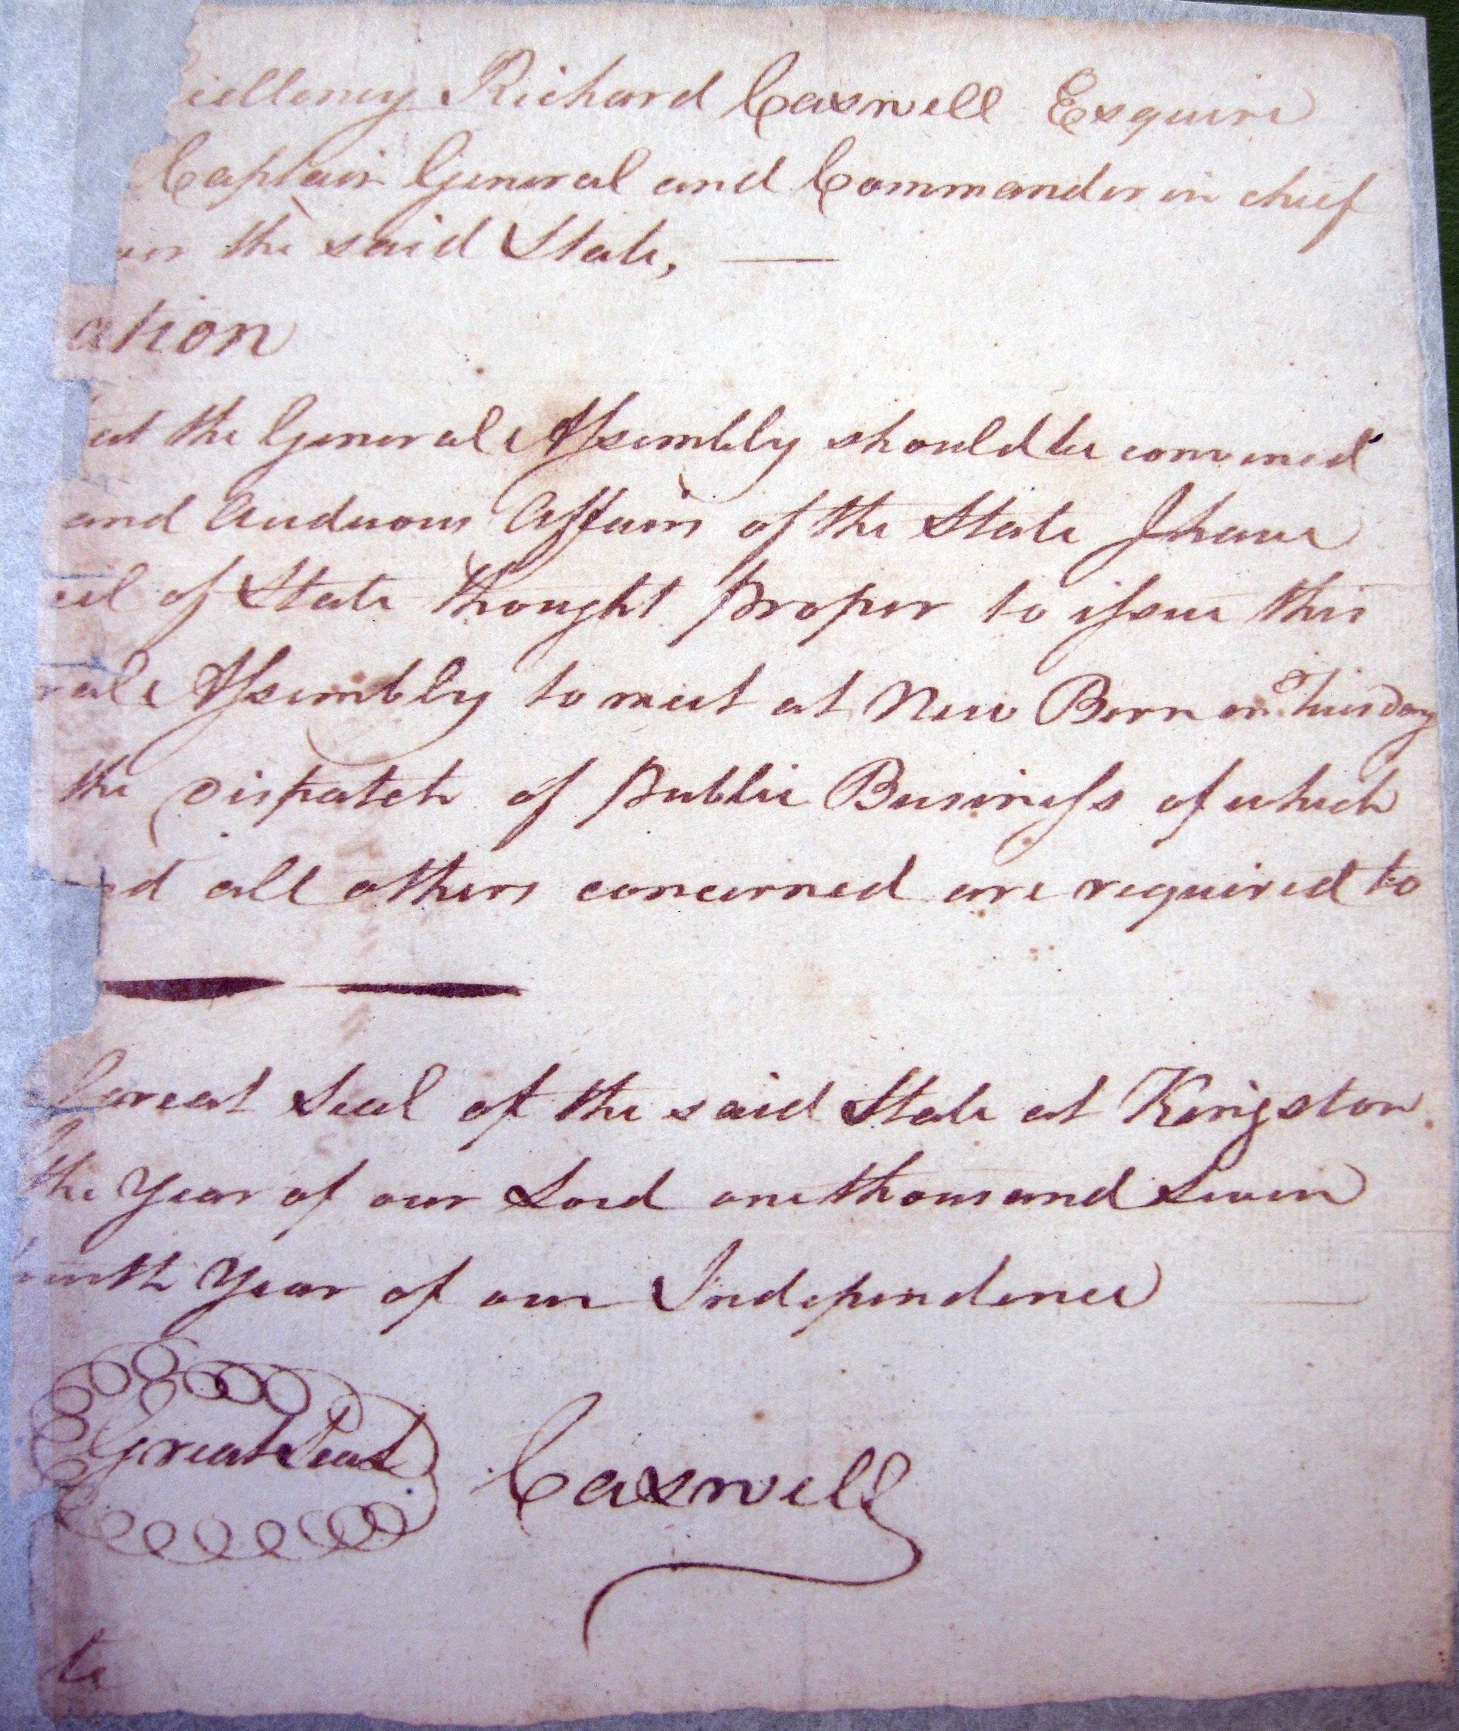 cellency Richard Caswell Esquire
Captain General and Commander in chief
over the said State,
ation
at the General Assembly should be convened
and Auduous Affairs of the State I have
cil of State thought proper to issue this
ral Assembly to meet at New Bern on Tuesday
the Dispatch of Public Business of which
nd all others concerned are required to
Great Seal of the said State at Kingston
the Year of our Lord one thousand Seven
ourth Year of our Independence
Great Seal
Caswell
te